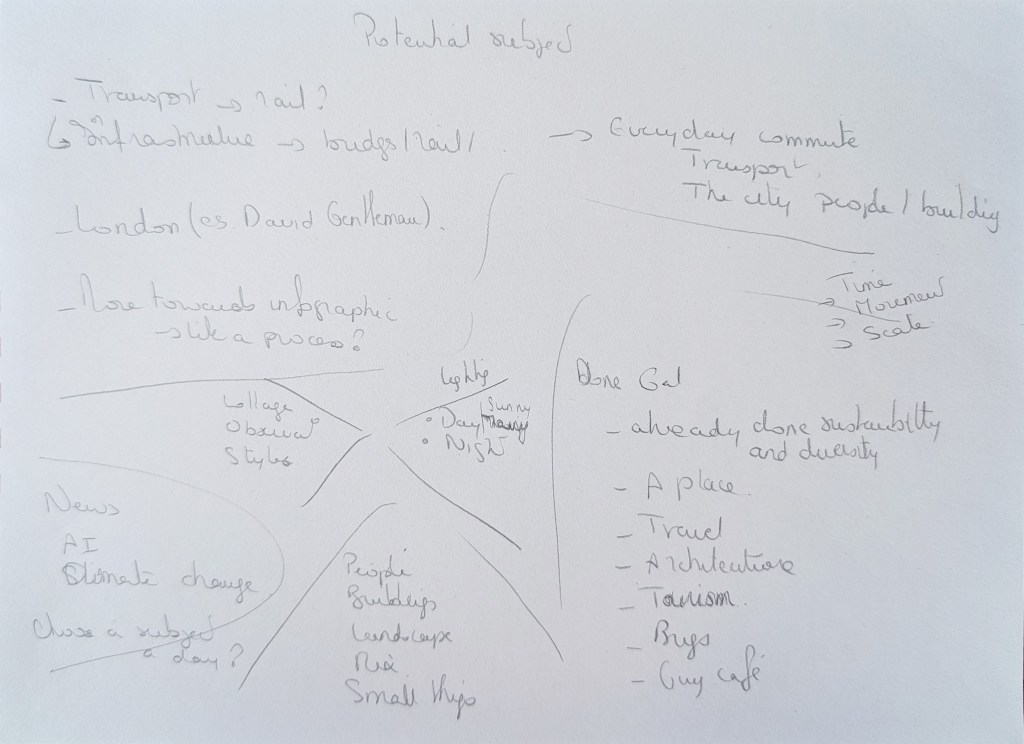 Potential subject
- Transport → rail?
↳ or infrastructure → bridges/rail/
- London (es David Gentleman).
- More towards infographic
→ like a process?
→ Everyday commute
Transport
The city people / building
Time
→ Movement
→ Scale
Lighting
• Day/Sunny
• Night
Collage
Observa°
Styles
News
AI
Climate change
Chose a subject
a day?
People
Buildings
Landscape
Mix
Small things
Done
- already done sustainability
and diversity
- A place
- Travel
- Architecture
- Tourism.
- Bugs
- café